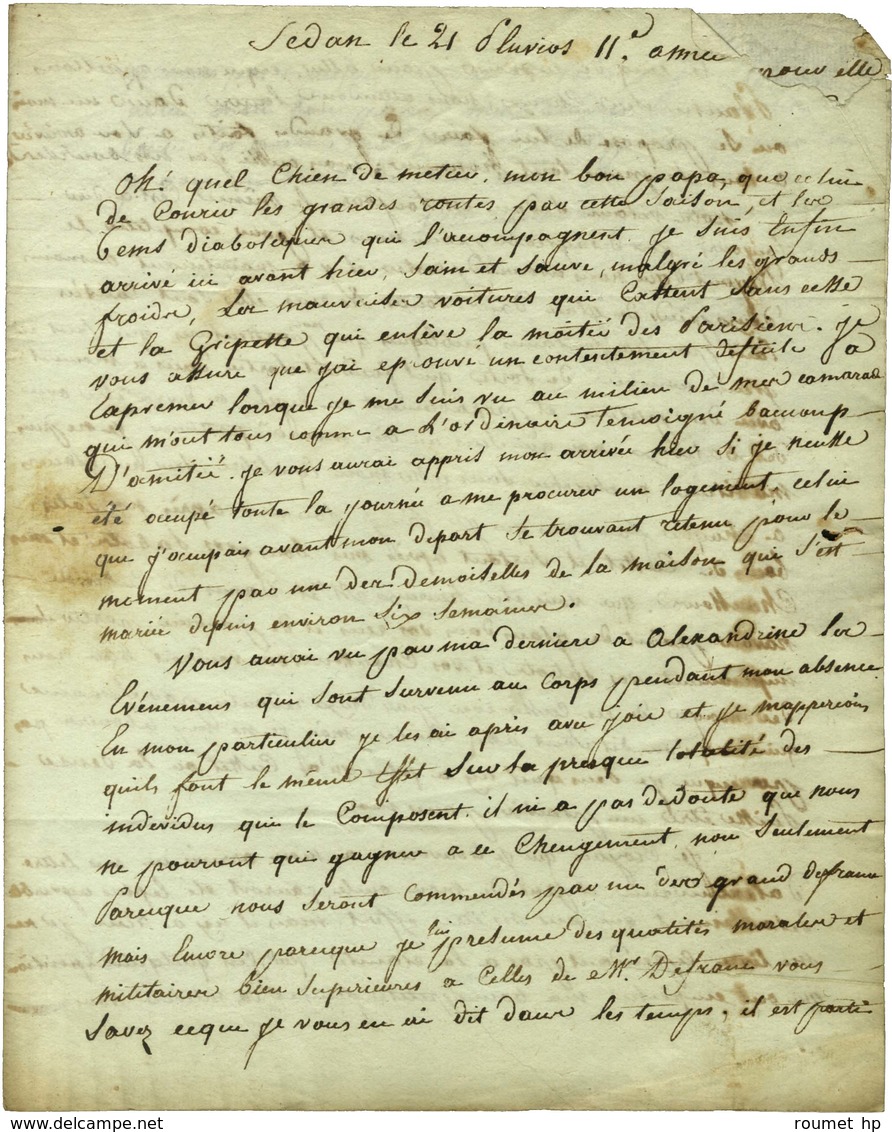 Sedan le 21 Pluvios 11.e année
nouvelle
Oh! quel Chien de metier, mon bon papa, que celui
de Courir les grandes routes par cette Saison, et les
tems diaboliques qui l'accompagnent. je suis Enfin
arrivé ici avant hier, Sain et Sauve, malgré les grands
froids, Les mauvaises voitures qui Cassent Sans cesse
et la Gripette qui enlève la moitié des Parisiens. je
vous assure que j'ai eprouvé un contentement deficile a
Exprimer lorsque je me suis vu au milieu de mes camarad
qui m'ont tous comme a L'ordinaire temoigné baucoup
D'amitié. je vous aurai appris mon arrivée hier Si je neusse
été ocupé toute la journée a me procurer un logement, celui
que j'ocupais avant mon depart Se trouvant retenu pour le
moment par une des demoiselles de la maison qui S'est
mariée depuis environ Six Semaines.
Vous aurai vu par ma derniere a Alexandrine les
Evénemens qui sont survenu au Corps pendant mon absence
En mon particulier je les ai apris avec joie et je mapperçois
quils font le même Effet Sur la presque totalité des
individus qui le Composent. il ni a pas de doute que nous
ne pouront que gagner a ce Chengement, non Seulement
Parceque nous Seront Commendés par un
grand
mais Encore parceque je lui présume des qualités morales et
militaires bien Superieures a Celles de Mr. Defranc vous
Savez ceque je vous en ai dit dans les temps, il est parti
roumet hp